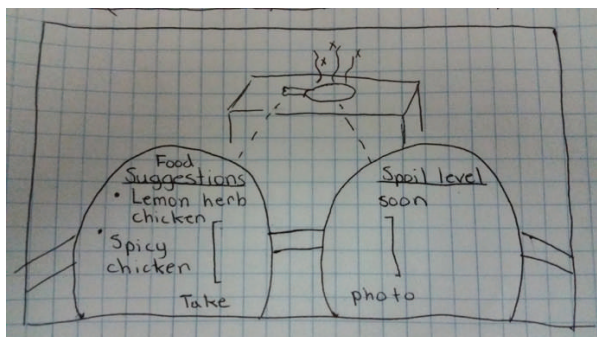 Food
Suggestions
• Lemon herb
chicken
• Spicy
chicken
Take
Spoil level
soon
photo